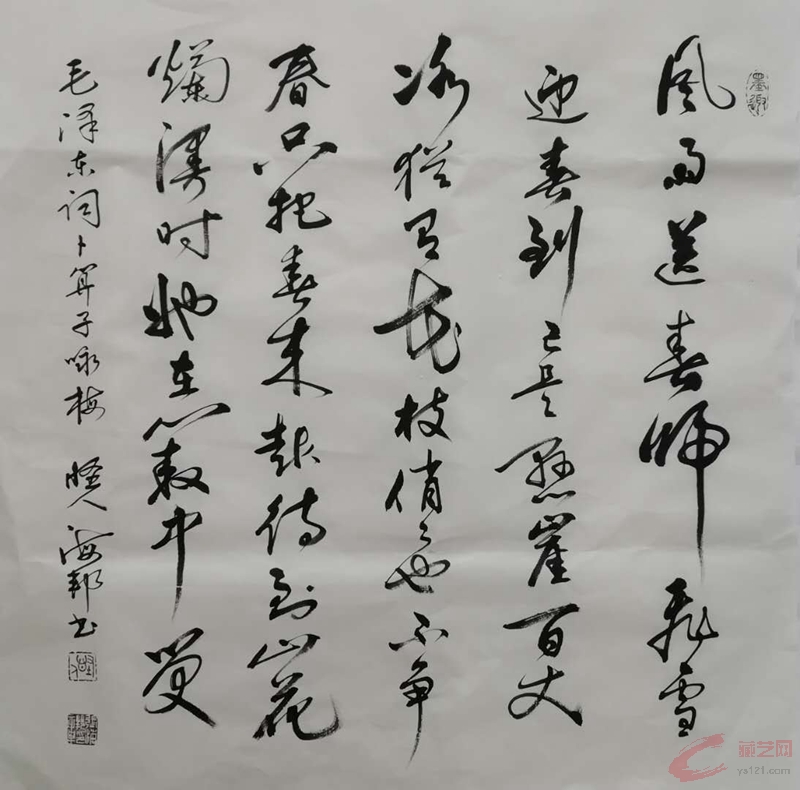 风雨送春归飞雪
迎春到已是悬崖百丈
冰犹有花枝俏俏也不争
春只把春来报待到山花
烂漫时她在丛中笑
毛泽东词卜算子咏梅 海邦书
藏艺网
ys121.com